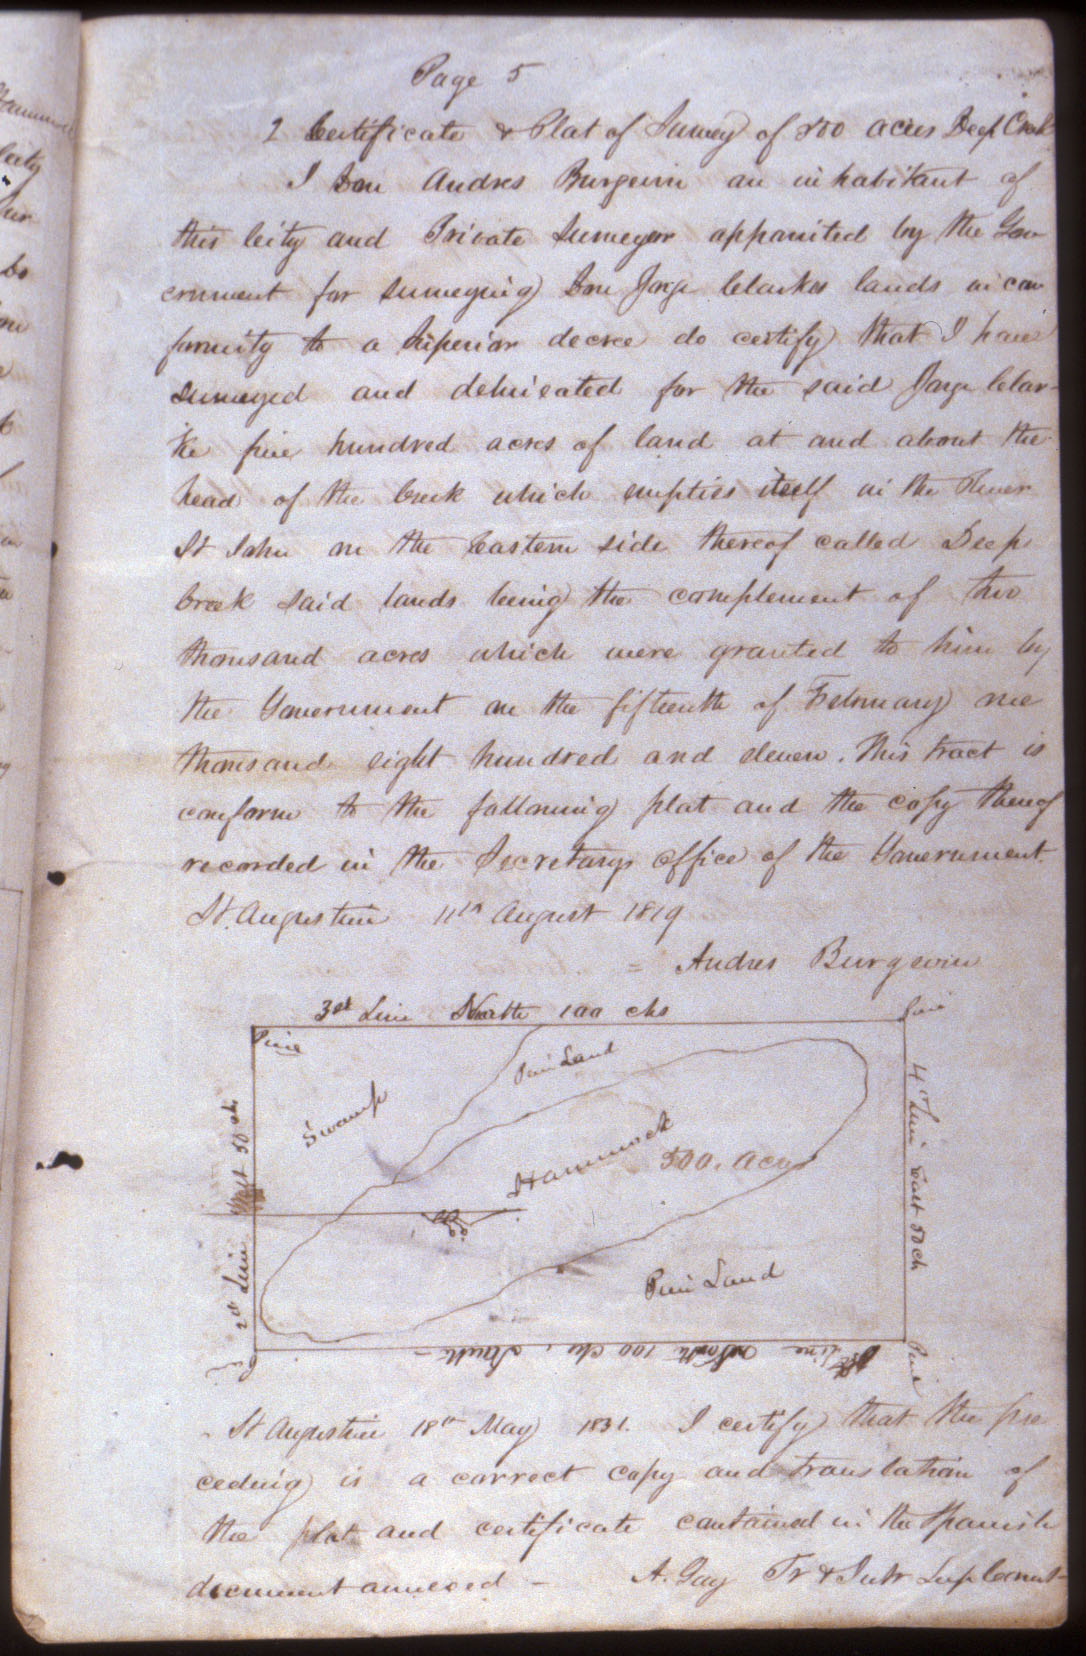 Page 5
2 Certificate & Plat of Survey of 500 acres Deep Creek
I Don Andres Burgevin an inhabitant of
this City and Private Surveyor appointed by the Gov
ernment for surveying Don Jorge Clarkes lands in con
formity to a Superior decree do certify that I have
surveyed and delineated for the said Jorge Clar-
ke five hundred acres of land at and about the
head of the Creek which empties itself in the River
St John on the Eastern side thereof called Deep
Creek said lands being the complement of two
thousand acres which were granted to him by
the Government on the fifteenth of February one
thousand eight hundred and eleven. This tract is
conform to the following plat and the copy thereof
recorded in the Secretarys office of the Government.
St. Augustine 11th August 1819
= Andres Burgevin
3d Line North 100 chs
Pine
Pine
Pine Land
Swamp
Hammock
500. Acres
Pine Land
2d Line West 50 ch.
4th Line East 50 ch
Line 100 chs. South -
Pine
St Augustine 18th May 1831. I certify that the pre
ceding is a correct copy and translation of
the plat and certificate contained in the Spanish
document annexed - A. Gay Tr & Intr Sup Court